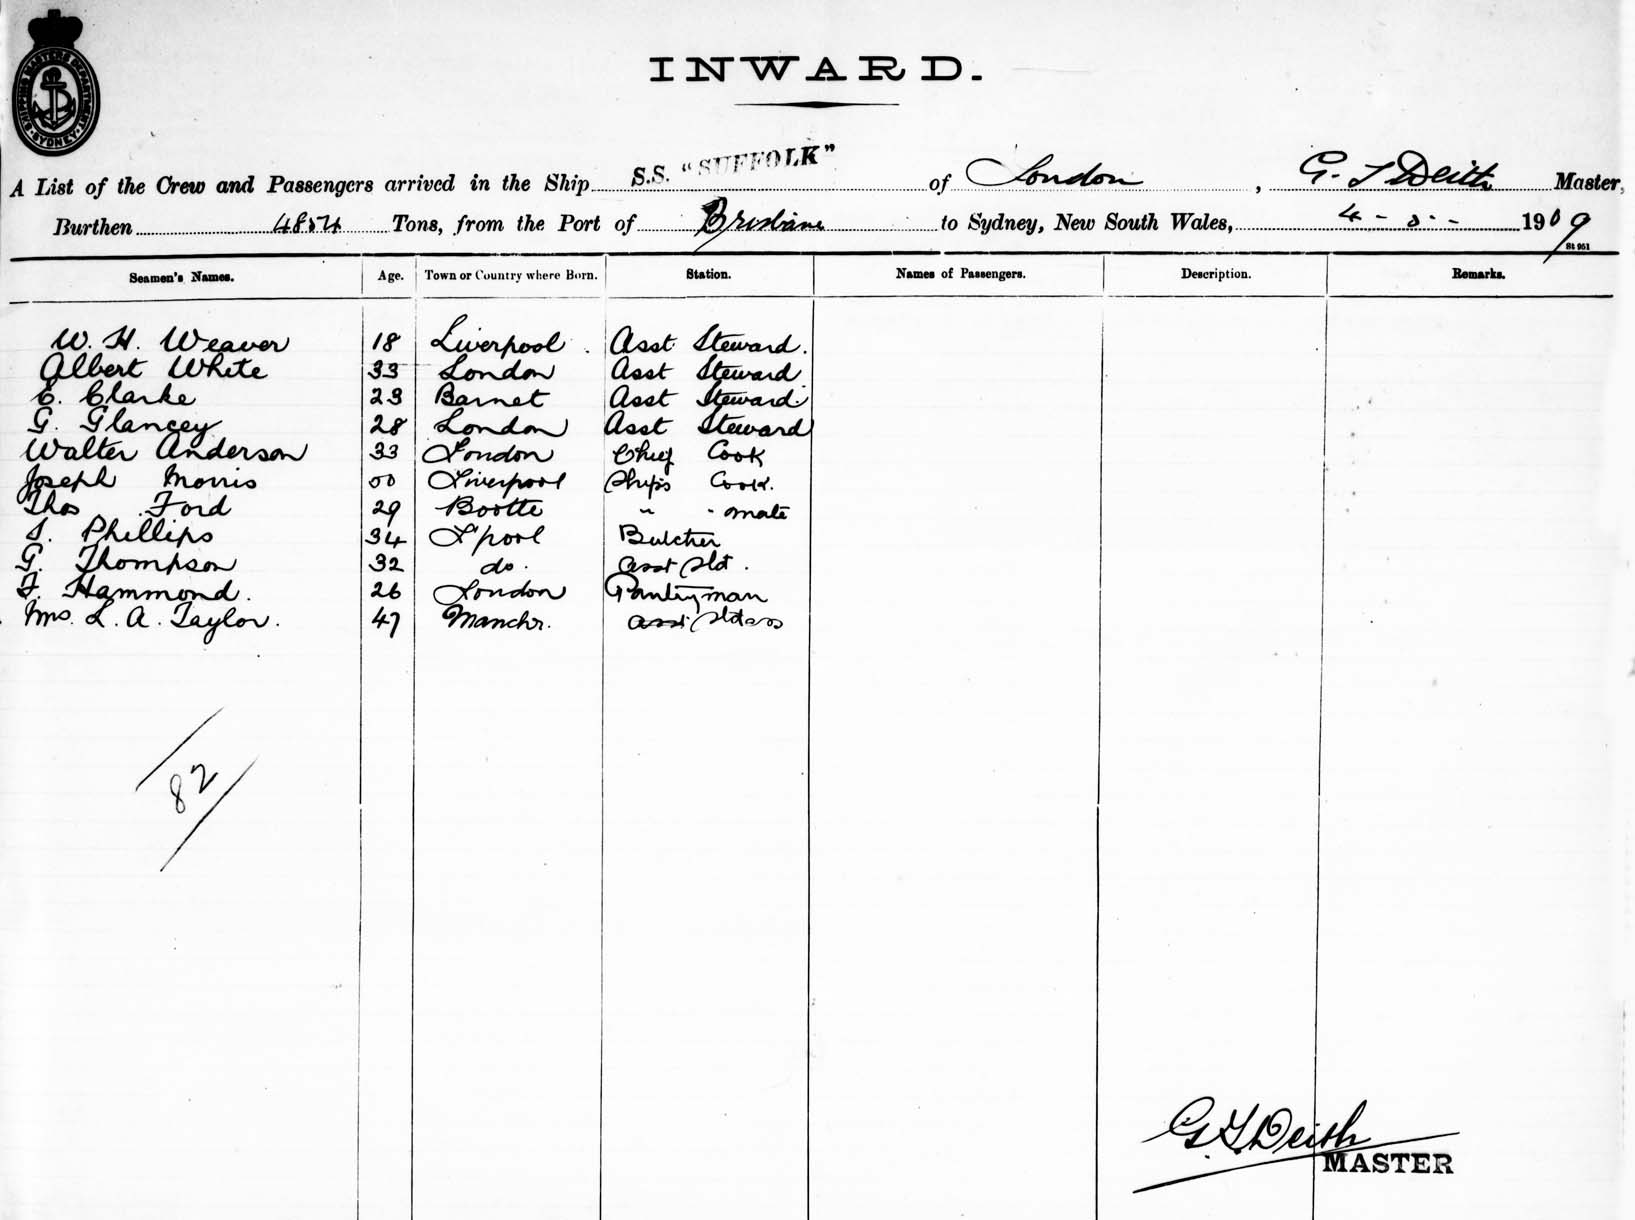 SHIPPING MASTERS DEPARTMENT SYDNEY
INWARD.
A List of the Crew and Passengers arrived in the Ship S.S. "SUFFOLK" of London, G. F Deith Master,
Burthen 4854 Tons, from the Port of Brisbane to Sydney, New South Wales, 4 - 1909
St 951
Seamen's Names. Age. Town or Country where Born. Station. Names of Passengers. Description. Remarks.
W. H. Weaver 18 Liverpool. Asst Steward.
Albert White 33 London Asst Steward
E. Clarke 23 Barnet Asst Steward
G. Glancey 28 London Asst Steward
Walter Anderson 33 London Chief Cook
Joseph Morris Liverpool Ships Cook.
Thos Ford 29 Bootle " " mate
S. Phillips 34 L'pool Butcher
G. Thompson 32 do. asst Std.
F. Hammond. 26 London Pantryman
Mrs. L. A. Taylor. 47 Manchr. asst Stdess
82
G F Deith
MASTER